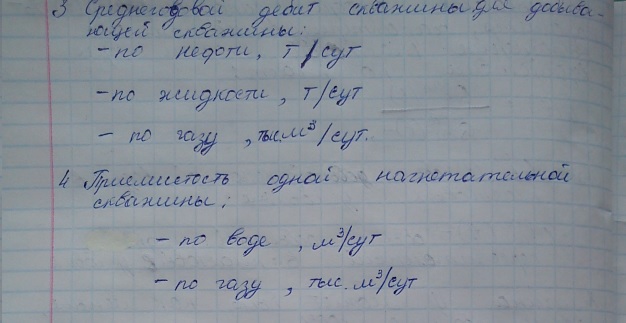 3 Среднегодовой дебит скважины для добыва-
ющей скважины:
- по нефти, т/сут
- по жидкости, т/сут
- по газу, тыс.м³/сут.
4 Приемистость одной нагнетательной
скважины:
- по воде, м³/сут
- по газу, тыс. м³/сут